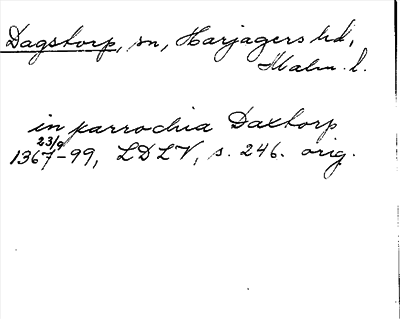 Dagstorp, sn, Harjagers hd,
Malm. l.
in parrochia Daxtorp
23/9
1367-99, LDLV, s. 246. orig.